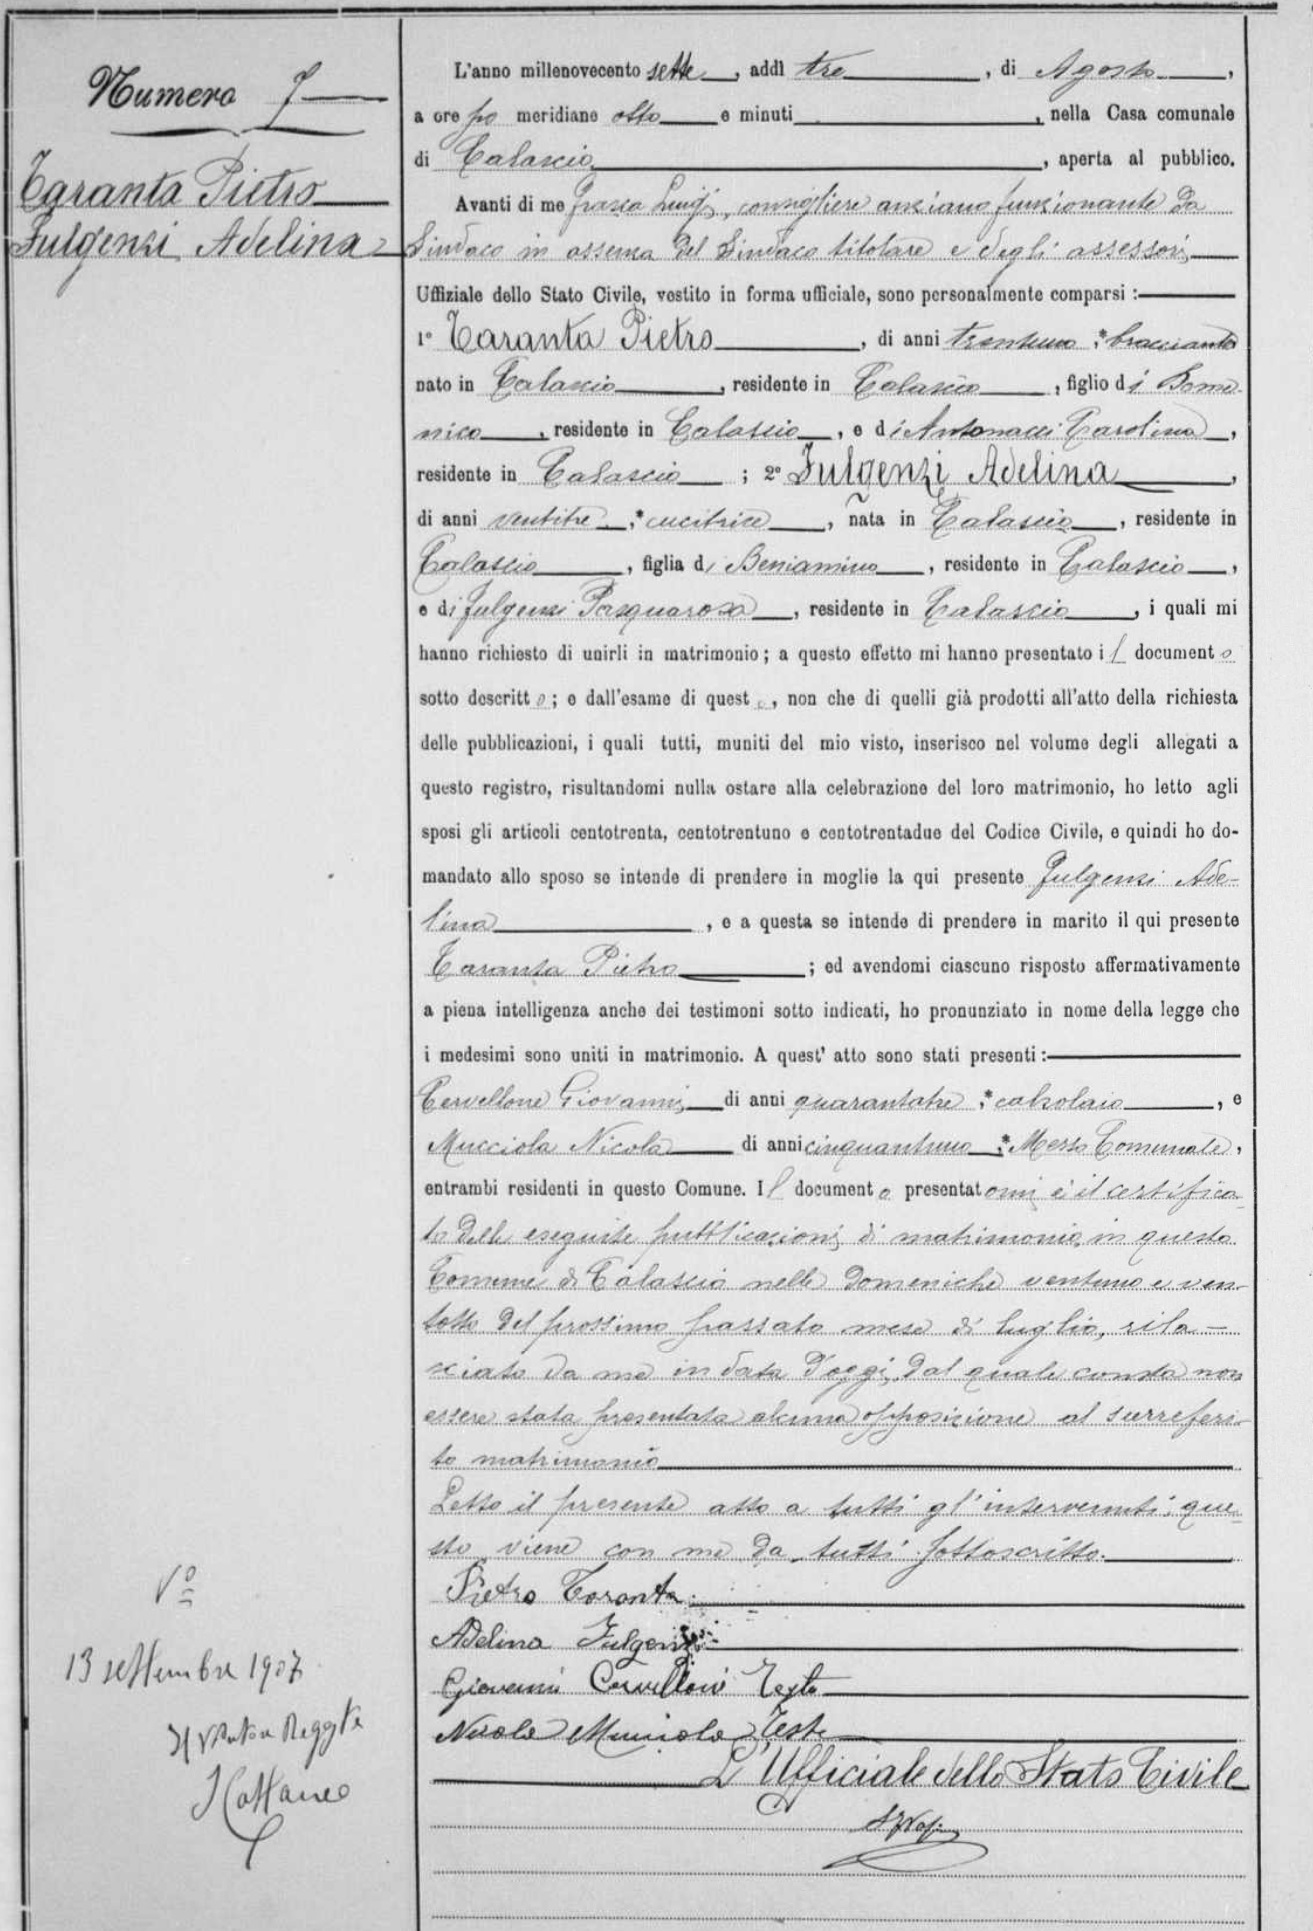 Numero 7
Taranta Pietro
Fulgenzi Adelina
L'anno millenovecento sette, addì tre, di Agosto,
a ore po meridiane otto e minuti , nella Casa comunale
di Calascio, aperta al pubblico.
Avanti di me Frasca Luigi, consigliere anziano funzionante da
Sindaco in assenza del Sindaco titolare e degli assessori,
Uffiziale dello Stato Civile, vestito in forma ufficiale, sono personalmente comparsi :
1° Taranta Pietro, di anni trentuno, * bracciante
nato in Calascio, residente in Calascio, figlio di Dome-
nico, residente in Calascio, e di Antonacci Carolina,
residente in Calascio ; 2° Fulgenzi Adelina,
di anni ventitre, * cucitrice, nata in Calascio, residente in
Calascio, figlia di Beniamino, residente in Calascio,
e di Fulgenzi Pasquarosa, residente in Calascio, i quali mi
hanno richiesto di unirli in matrimonio ; a questo effetto mi hanno presentato il documento
sotto descritto ; e dall'esame di questo, non che di quelli già prodotti all'atto della richiesta
delle pubblicazioni, i quali tutti, muniti del mio visto, inserisco nel volume degli allegati a
questo registro, risultandomi nulla ostare alla celebrazione del loro matrimonio, ho letto agli
sposi gli articoli centotrenta, centotrentuno e centotrentadue del Codice Civile, e quindi ho do-
mandato allo sposo se intende di prendere in moglie la qui presente Fulgenzi Ade-
lina, e a questa se intende di prendere in marito il qui presente
Taranta Pietro ; ed avendomi ciascuno risposto affermativamente
a piena intelligenza anche dei testimoni sotto indicati, ho pronunziato in nome della legge che
i medesimi sono uniti in matrimonio. A quest' atto sono stati presenti :
Cervellone Giovanni, di anni quarantatre, * calzolaio, e
Mucciola Nicola di anni cinquantuno, * Messo Comunale,
entrambi residenti in questo Comune. Il documento presentatomi è il certifica-
to delle eseguite pubblicazioni di matrimonio in questo
Comune di Calascio nelle Domeniche ventuno e ven-
totto del prossimo passato mese di luglio, rila-
sciato da me in data d'oggi, dal quale consta non
essere stata presentata alcuna opposizione al surreferi-
to matrimonio
Letto il presente atto a tutti gl'intervenuti, que-
sto viene con me da tutti sottoscritto.
Pietro Taranta
Adelina Fulgenzi
Giovanni Cervelloni Teste
Nicola Mucciola Teste
L'Ufficiale dello Stato Civile
V°
13 settembre 1907
Il Reggte
Cattaneo